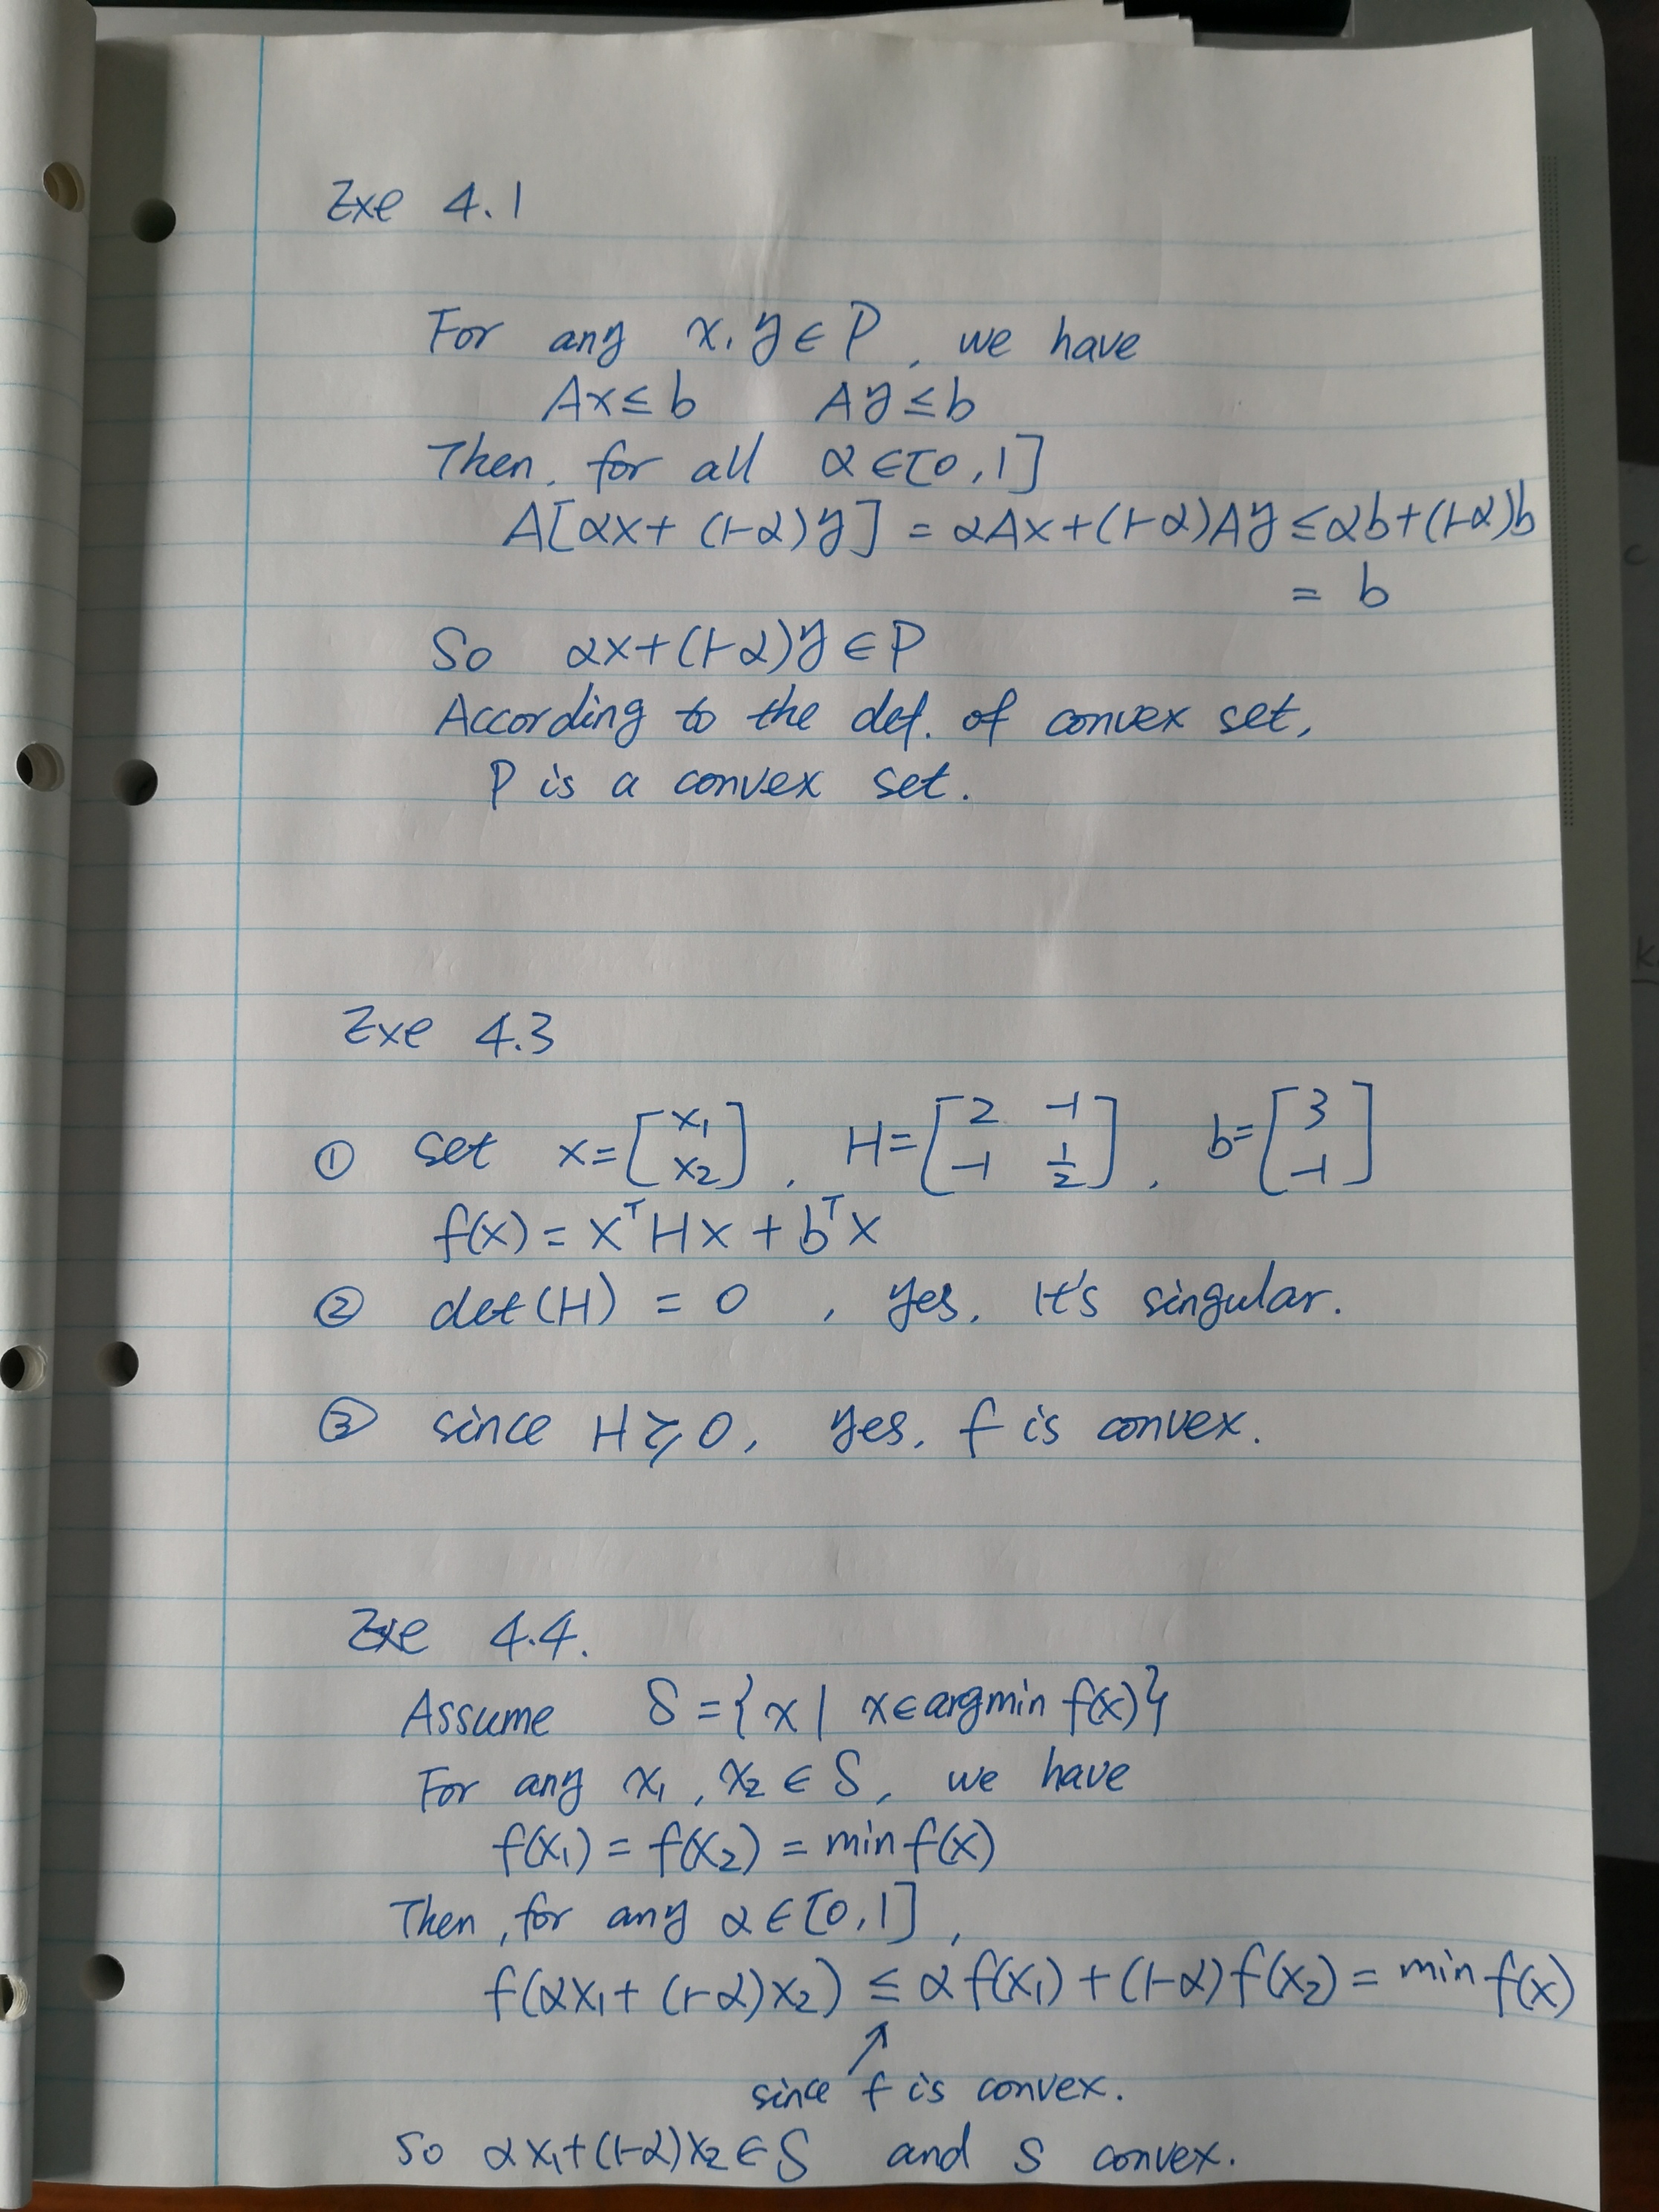 Exe 4.1
For any x, y ∈ P, we have
Ax ≤ b Ay ≤ b
Then, for all α ∈ [0, 1]
A[αx + (1-α)y] = αAx + (1-α)Ay ≤ αb + (1-α)b
= b
So αx + (1-α)y ∈ P
According to the def. of convex set,
P is a convex set.
Exe 4.3
① set x = [x₁; x₂], H = [2 -1; -1 1/2], b = [3; -1]
f(x) = xᵀHx + bᵀx
② det(H) = 0, yes, it's singular.
③ since H ≽ 0, yes, f is convex.
Exe 4.4.
Assume S = {x | x ∈ argmin f(x)}
For any x₁, x₂ ∈ S, we have
f(x₁) = f(x₂) = min f(x)
Then, for any α ∈ [0, 1],
f(αx₁ + (1-α)x₂) ≤ αf(x₁) + (1-α)f(x₂) = min f(x)
↑
since f is convex.
So αx₁ + (1-α)x₂ ∈ S and S convex.